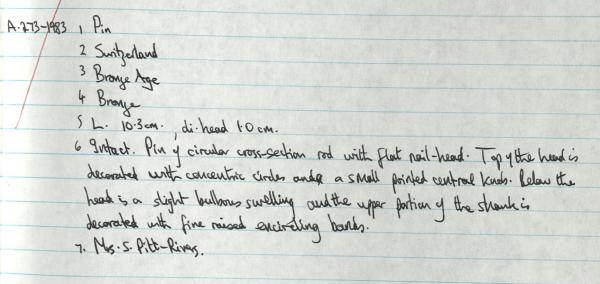 A.273-1983 1 Pin
2 Switzerland
3 Bronze Age
4 Bronze
5 L. 10.3cm., di.head 1.0cm.
6 Intact. Pin of circular cross-section rod with flat nail-head. Top of the head is
decorated with concentric circles and a small pointed central knob. Below the
head is a slight bulbous swelling and the upper portion of the shank is
decorated with fine raised encircling bands.
7. Mrs. S. Pitt-Rivers.